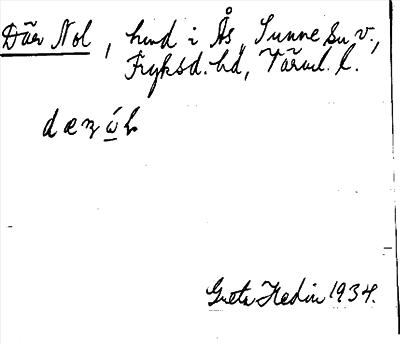 Där Nol, hmd i Ås, Sunne sn v.,
Fryksd. hd, Värml. l.
Greta Hedin 1934.